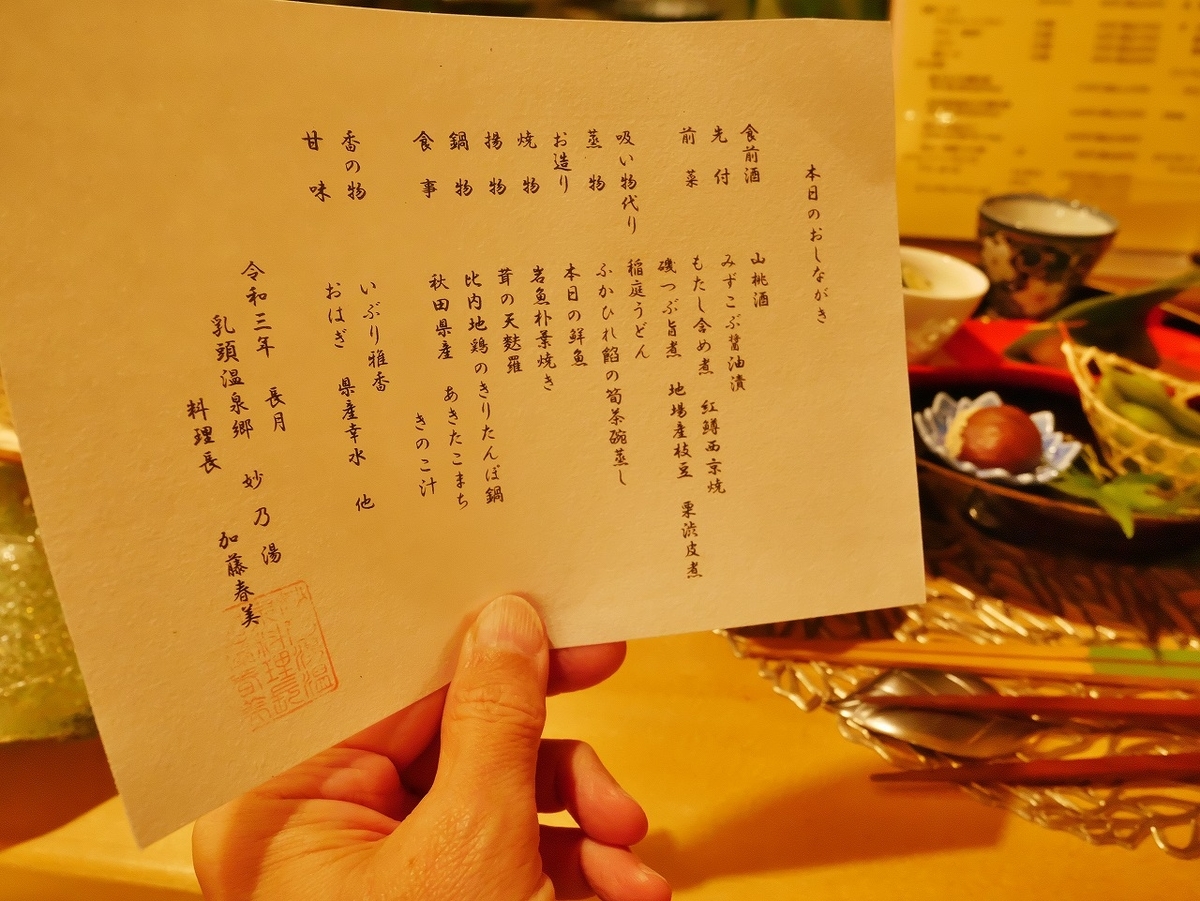 本日のおしながき
食前酒 山桃酒
先付 みずこぶ醤油漬
前菜 もたし含め煮 紅鱒西京焼
磯つぶ旨煮 地場産枝豆 栗渋皮煮
吸い物代り 稲庭うどん
蒸物 ふかひれ餡の筍茶碗蒸し
お造り 本日の鮮魚
焼物 岩魚朴葉焼き
揚物 茸の天麩羅
鍋物 比内地鶏のきりたんぽ鍋
食事 秋田県産 あきたこまち
きのこ汁
香の物 いぶり雅香
甘味 おはぎ 県産幸水 他
令和三年 長月 妙乃湯
乳頭温泉郷
料理長 加藤春美